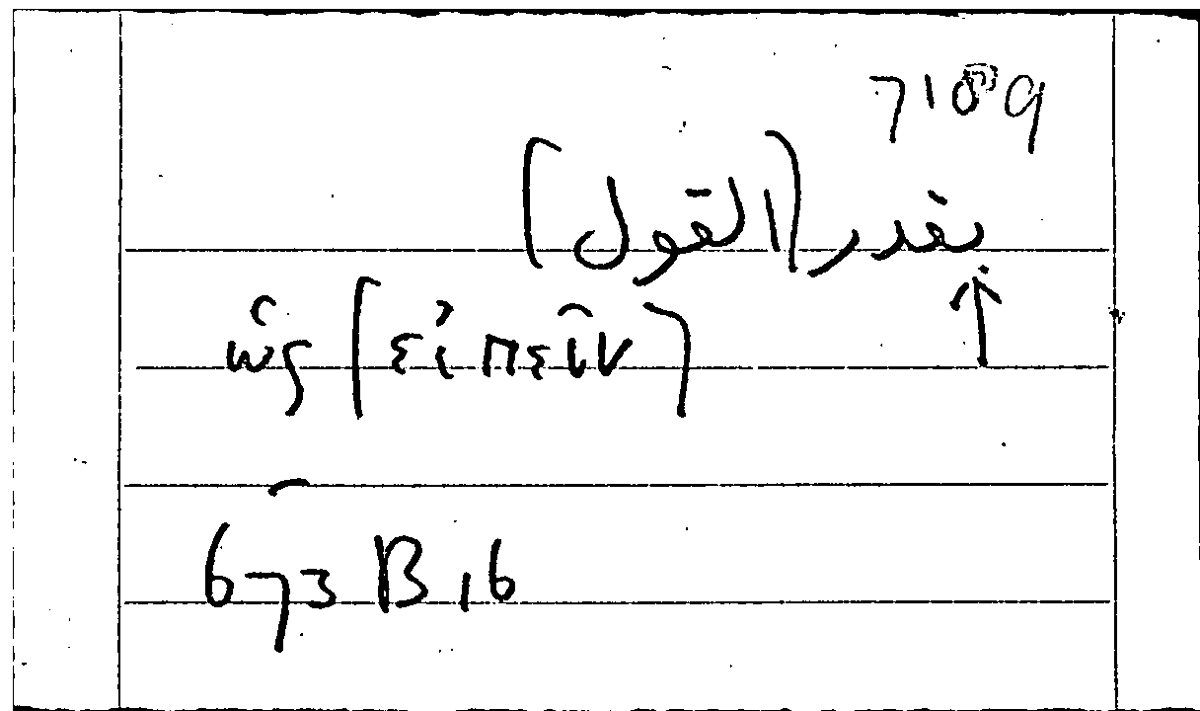 7189
بقدر (القول)
↑
ὡς (εἰπεῖν)
673 B 16